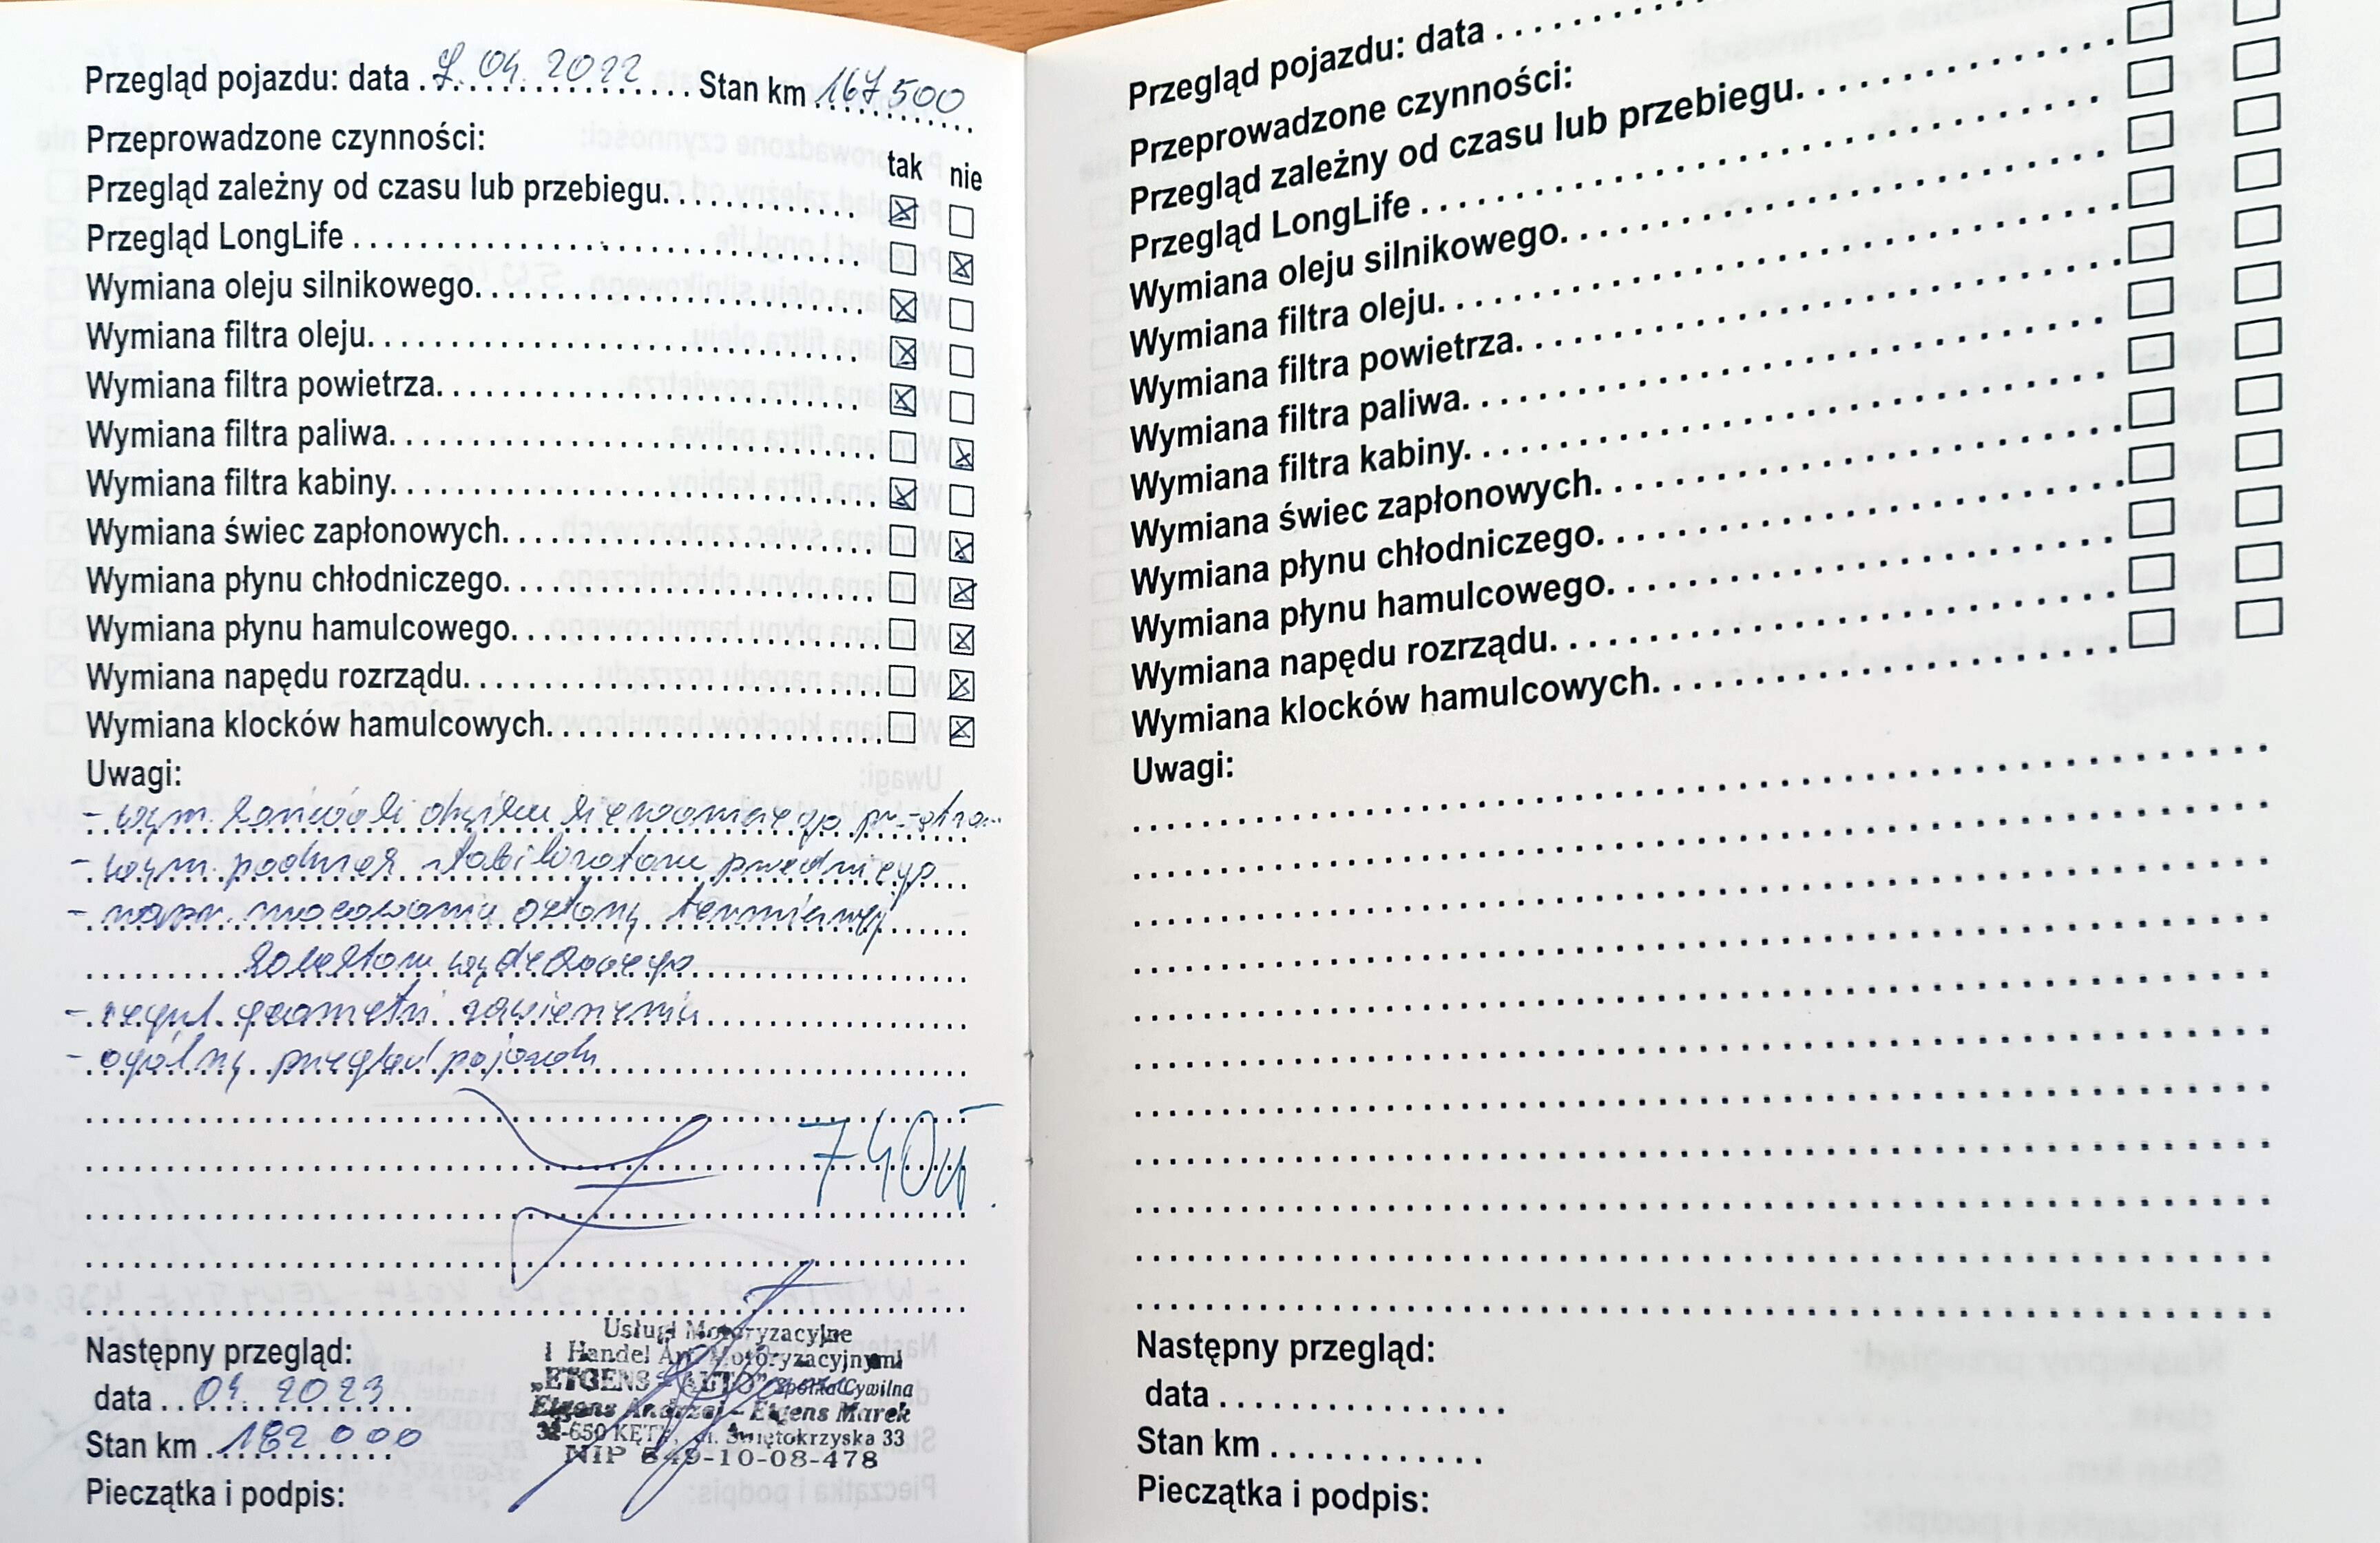 Przegląd pojazdu: data 7. 04. 2022 Stan km 167 500
Przeprowadzone czynności:
tak nie
Przegląd zależny od czasu lub przebiegu
Przegląd LongLife
Wymiana oleju silnikowego
Wymiana filtra oleju
Wymiana filtra powietrza
Wymiana filtra paliwa
Wymiana filtra kabiny
Wymiana świec zapłonowych
Wymiana płynu chłodniczego
Wymiana płynu hamulcowego
Wymiana napędu rozrządu
Wymiana klocków hamulcowych
Uwagi:
- wym. końcówki drążka kierowniczego pr.
- wym. podusek stabilizatora przedniego
- napr. mocowania osłony termicznej
kolektora wydechowego
- regul. geometri zawieszenia
- ogólny przegląd pojazdu
740 zł
Następny przegląd:
data 04. 2023
Stan km 182 000
Pieczątka i podpis:
Usługi Motoryzacyjne
i Handel Art. Motoryzacyjnymi
„ETGENS - AUTO" Spółka Cywilna
Etgens Andrzej - Etgens Marek
32-650 KĘTY, ul. Świętokrzyska 33
NIP 549-10-08-478
Przegląd pojazdu: data
Przeprowadzone czynności:
Przegląd zależny od czasu lub przebiegu
Przegląd LongLife
Wymiana oleju silnikowego
Wymiana filtra oleju
Wymiana filtra powietrza
Wymiana filtra paliwa
Wymiana filtra kabiny
Wymiana świec zapłonowych
Wymiana płynu chłodniczego
Wymiana płynu hamulcowego
Wymiana napędu rozrządu
Wymiana klocków hamulcowych
Uwagi:
Następny przegląd:
data
Stan km
Pieczątka i podpis: